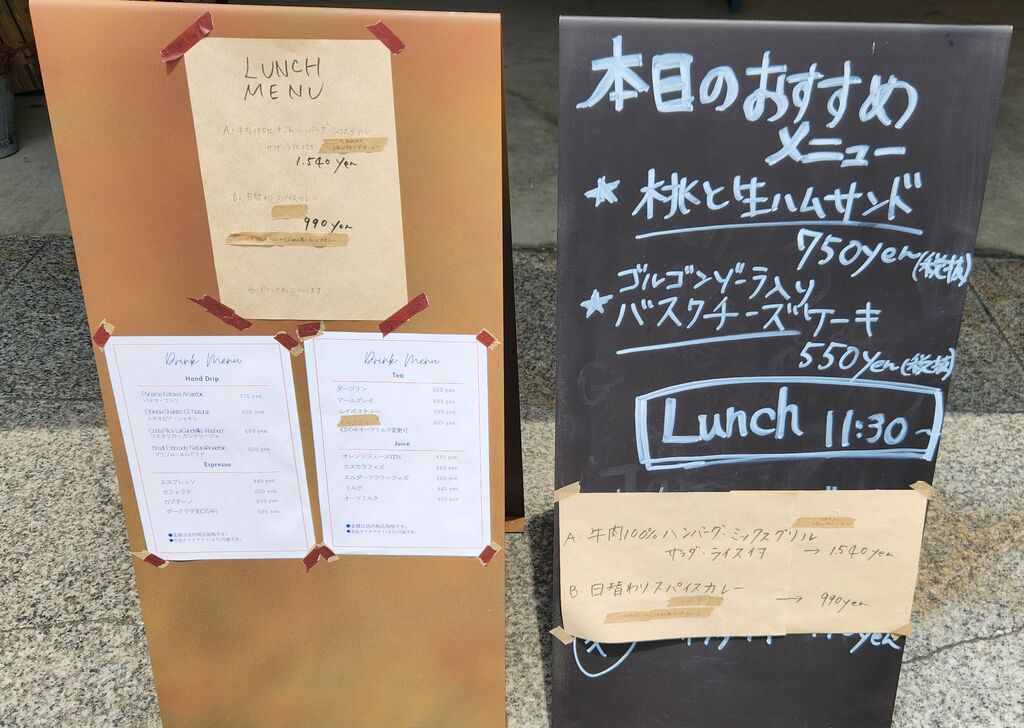 LUNCH
MENU
A. 牛肉100% 手ごねハンバーグ・ミックスグリル
サラダ・ライス付き
1.540 yen
B. 日替わりスパイスカレー
990 yen
Drink Menu
Hand Drip
Panama Kotowa Anaerobic 770 yen
パナマ・コトワ
Ethiopia Shakiso G1 Natural 660 yen
エチオピア・シャキソ
Costa Rica LaCandelilla Washed 660 yen
コスタリカ・カンデリージャ
Brazil Eldorado NaturalAnaerobic 550 yen
ブラジル・エルドラド
Espresso
エスプレッソ 440 yen
カフェラテ 660 yen
カプチーノ 605 yen
ダークラテ(ICEのみ) 605 yen
●金額は店内税込価格です。
Drink Menu
Tea
ダージリン 550 yen
アールグレイ 605 yen
ルイボスティー 605 yen
605 yen
ICEのみオーツミルク変更可
Juice
オレンジジュース100% 440 yen
ガスカラフィズ
エルダーフラワーフィズ
ミルク 440 yen
オーツミルク 550 yen
●金額は店内税込価格です。
本日のおすすめ
メニュー
★ 桃と生ハムサンド
750yen(税抜)
★ ゴルゴンゾーラ入り
バスクチーズケーキ
550yen(税抜)
Lunch 11:30~
A. 牛肉100% ハンバーグ・ミックスグリル
サラダ・ライス付 → 1.540 yen
B. 日替わりスパイスカレー
→ 990yen